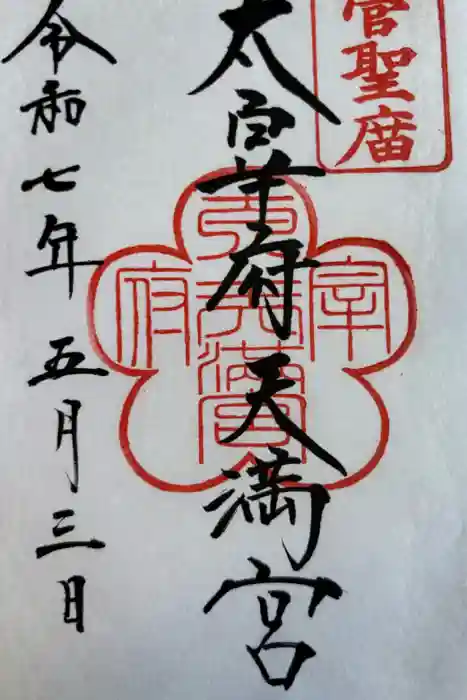 菅聖庿
太宰府天満宮
令和七年五月三日